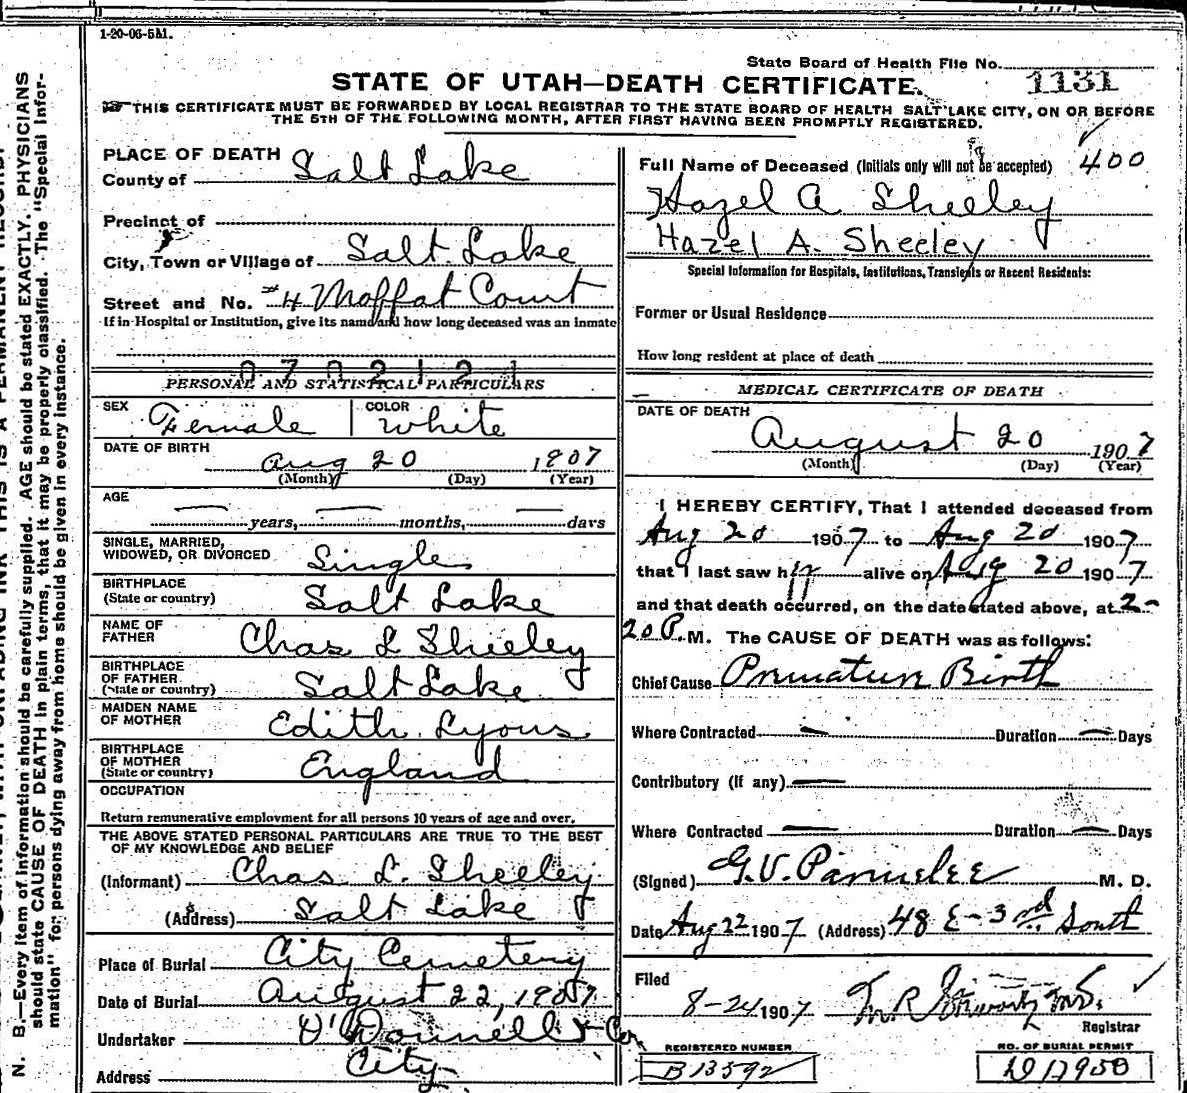 1-20-06-5M.
State Board of Health File No. 1131
STATE OF UTAH—DEATH CERTIFICATE.
THIS CERTIFICATE MUST BE FORWARDED BY LOCAL REGISTRAR TO THE STATE BOARD OF HEALTH SALT LAKE CITY, ON OR BEFORE
THE 5TH OF THE FOLLOWING MONTH, AFTER FIRST HAVING BEEN PROMPTLY REGISTERED.
N. B.—Every item of information should be carefully supplied. AGE should be stated EXACTLY. PHYSICIANS
should state CAUSE OF DEATH in plain terms, that it may be properly classified. The "Special Infor-
mation" for persons dying away from home should be given in every instance.
PLACE OF DEATH
County of Salt Lake
Precinct of
City, Town or Village of Salt Lake
Street and No. #4 Moffat Court
If in Hospital or Institution, give its name and how long deceased was an inmate
PERSONAL AND STATISTICAL PARTICULARS
SEX Female COLOR White
DATE OF BIRTH
Aug 20 1907
(Month) (Day) (Year)
AGE
— years, — months, — days
SINGLE, MARRIED,
WIDOWED, OR DIVORCED Single
BIRTHPLACE
(State or country) Salt Lake
NAME OF
FATHER Chas L Sheeley
BIRTHPLACE
OF FATHER
(State or country) Salt Lake
MAIDEN NAME
OF MOTHER Edith Lyons
BIRTHPLACE
OF MOTHER
(State or country) England
OCCUPATION
Return remunerative employment for all persons 10 years of age and over.
THE ABOVE STATED PERSONAL PARTICULARS ARE TRUE TO THE BEST
OF MY KNOWLEDGE AND BELIEF
(Informant) Chas. L. Sheeley
(Address) Salt Lake
Place of Burial City Cemetery
Date of Burial August 22, 1907
Undertaker O'Donnell & Co
Address City
Full Name of Deceased (Initials only will not be accepted) 400
Hazel A Sheeley
Hazel A. Sheeley
Special Information for Hospitals, Institutions, Transients or Recent Residents:
Former or Usual Residence
How long resident at place of death
MEDICAL CERTIFICATE OF DEATH
DATE OF DEATH
August 20 1907
(Month) (Day) (Year)
I HEREBY CERTIFY, That I attended deceased from
Aug 20 1907 to Aug 20 1907
that I last saw her alive on Aug 20 1907
and that death occurred, on the date stated above, at 2-
20 P. M. The CAUSE OF DEATH was as follows:
Chief Cause Premature Birth
Where Contracted — Duration — Days
Contributory (if any) —
Where Contracted — Duration — Days
(Signed) G. V. Parmelee M. D.
Date Aug 22 1907 (Address) 48 E - 3rd South
Filed
8-24 1907 M.D.
Registrar
REGISTERED NUMBER
B 13592
NO. OF BURIAL PERMIT
D 17950